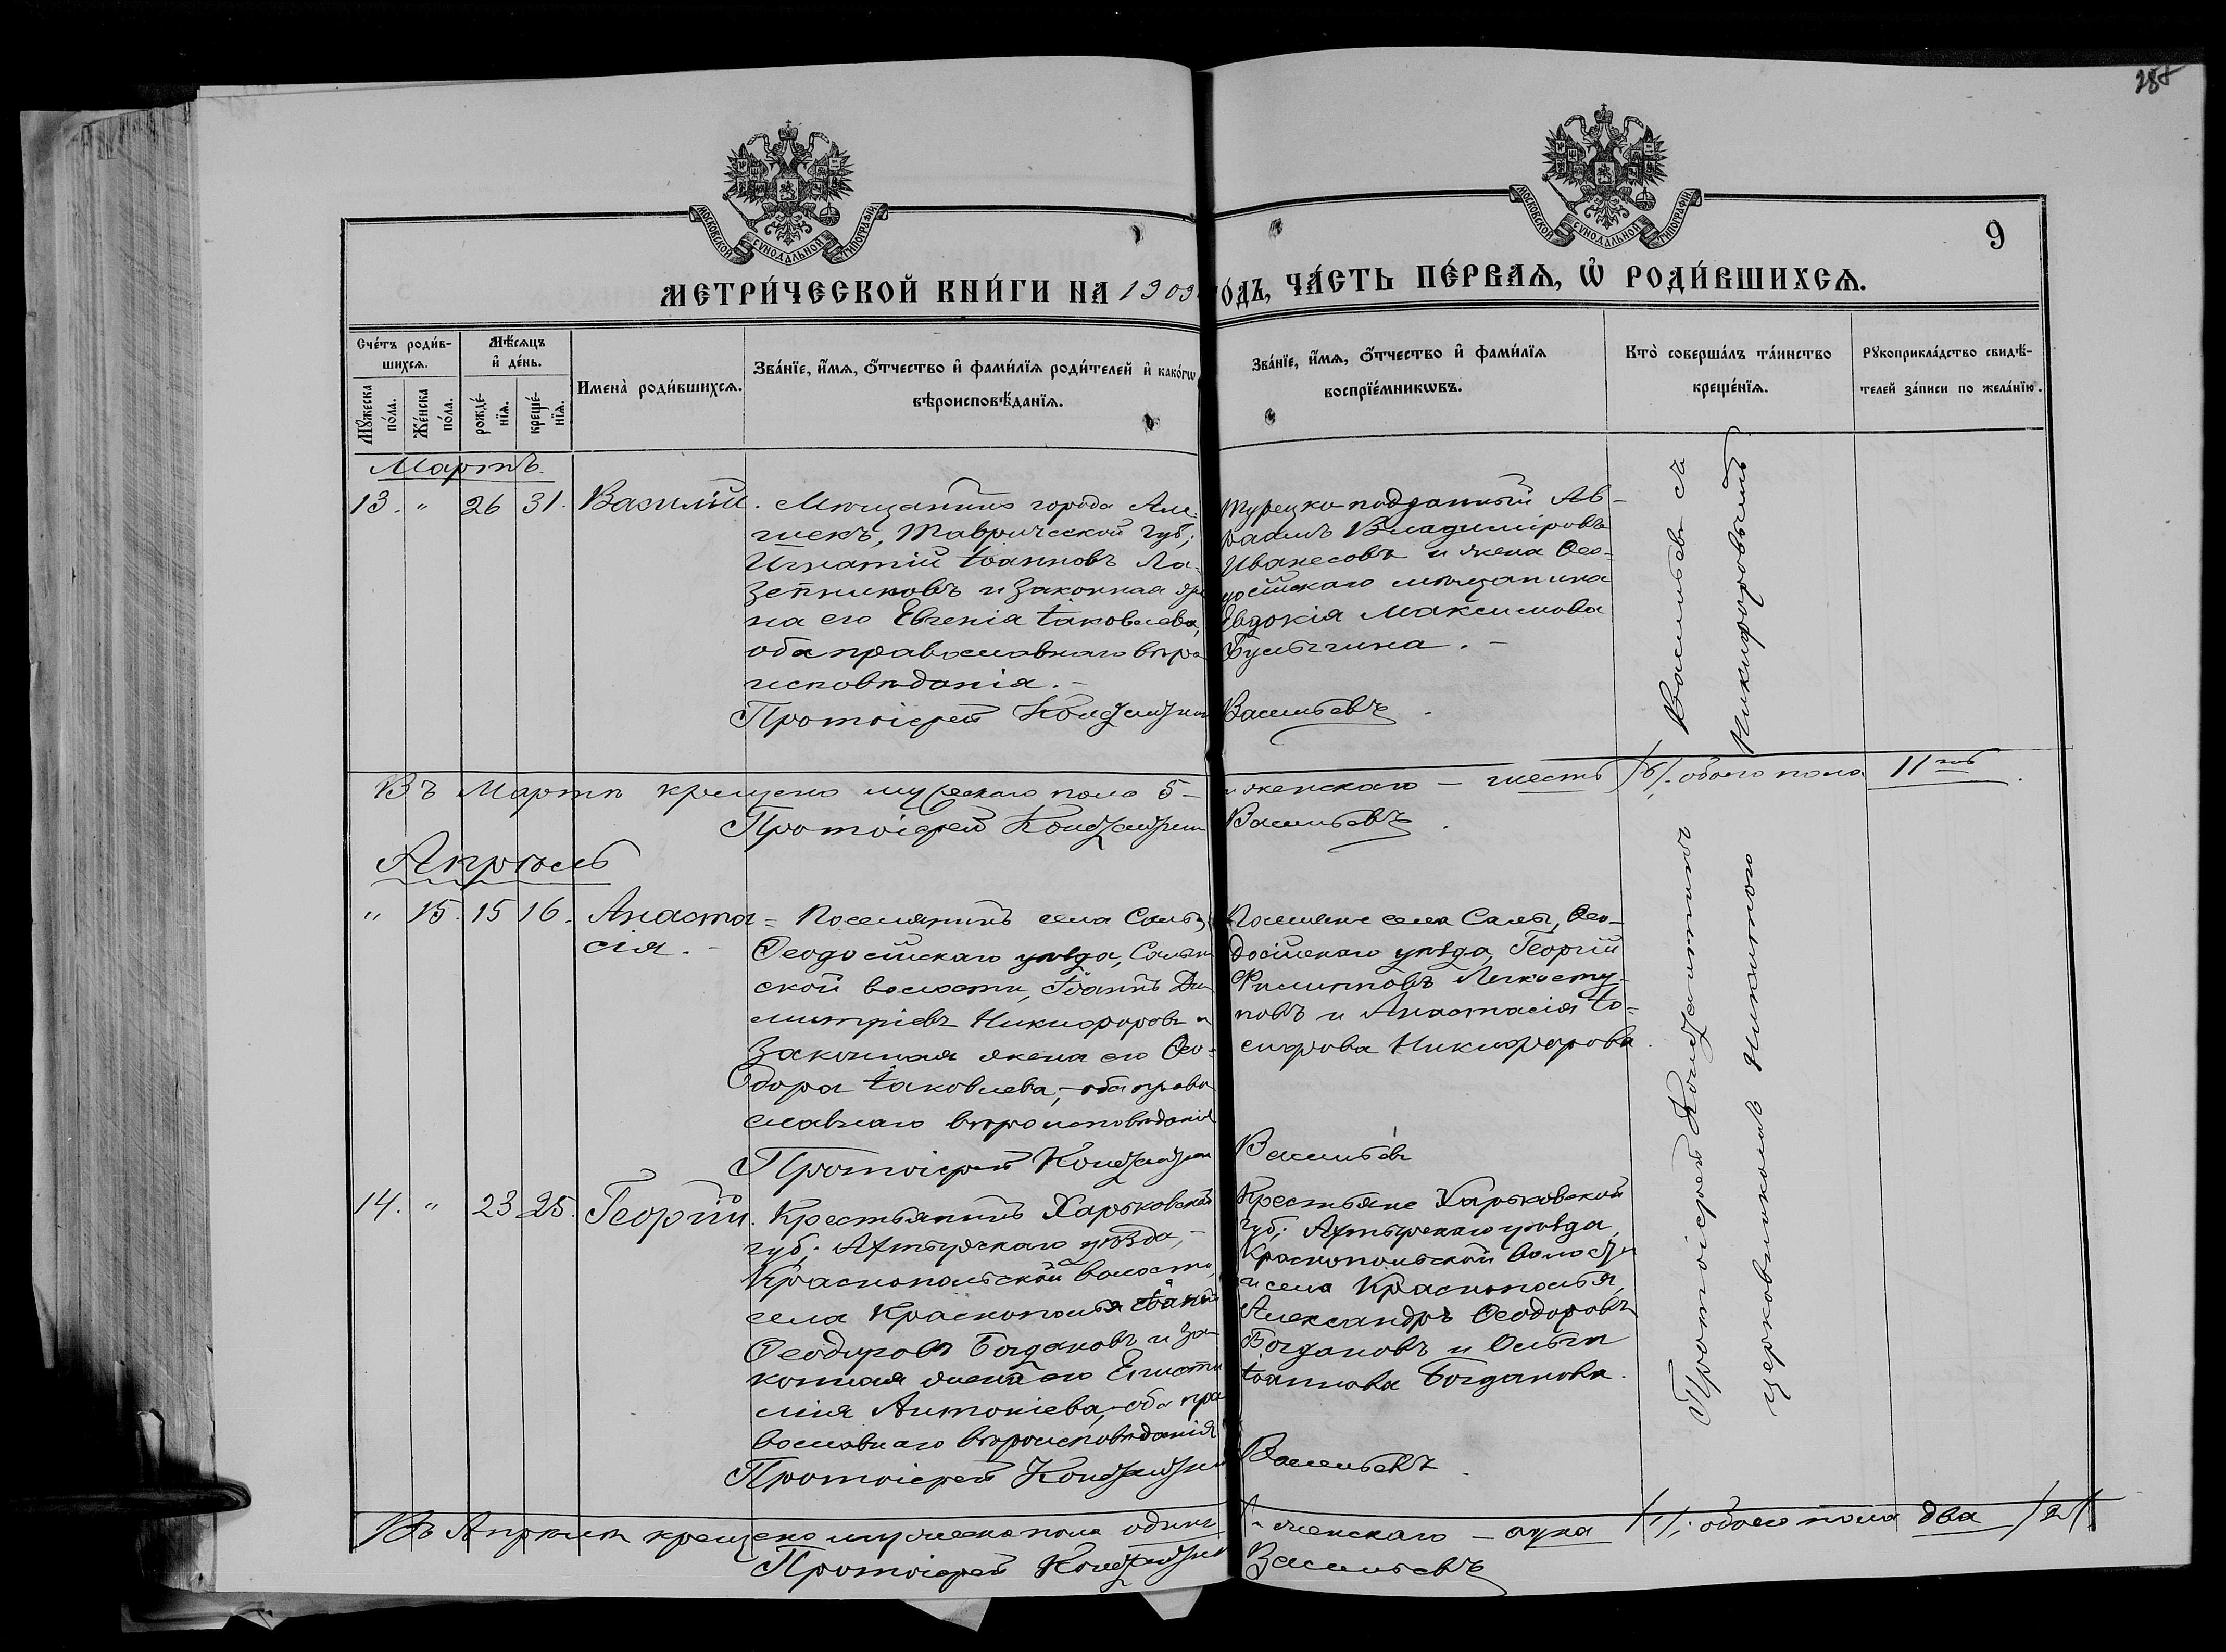 288
МОСКОВСКОЙ СѴНОДАЛЬНОЙ ТИПОГРАФІИ
МОСКОВСКОЙ СѴНОДАЛЬНОЙ ТИПОГРАФІИ
9
МЕТРИ́ЧЕСКОЙ КНИ́ГИ НА 1909 ГО́ДЪ, ЧА́СТЬ ПЕ́РВАѦ, Ѡ҆ РОДИ́ВШИХСѦ.
Сче́тъ роди́в-
шихсѧ.
Мꙋ́жеска по́ла.
Же́нска по́ла.
Мѣ́сѧцъ
и҆ де́нь.
рожде́-
нїѧ.
креще́-
нїѧ.
Имена̀ роди́вшихсѧ.
Зва́нїе, и҆́мѧ, ѻ҆́тчество и҆ фами́лїѧ роди́телей и҆ како́гѡ
вѣроисповѣ́данїѧ.
Зва́нїе, и҆́мѧ, ѻ҆́тчество и҆ фами́лїѧ
воспрїе́мникѡвъ.
Кто̀ соверша́лъ та́инство
креще́нїѧ.
Рꙋкоприкла́дство свидѣ́-
телей за́писи по жела́нїю.
Мартъ.
13. " 26 31. Василій. Мѣщанинъ города Але-
шекъ, Таврической губ;
Игнатій Іоанновъ Ла-
зенниковъ и законная же
на его Евгенія Іаковлева,
оба православнаго вѣро
исповѣданія.-
Протоіерей Константинъ Васильевъ.
Турецко-подданный Ав-
раамъ Владиміровъ
Иванесовъ и жена Ѳео-
досійскаго мѣщанина
Евдокія Максимова
Булыгина.-
Васильевъ съ
Никифоровымъ
Въ Мартѣ крещено мужескаго пола 5- и женскаго - шесть /6/. обоего пола 11ть.
Протоіерей Константинъ Васильевъ.
Апрѣль
" 15. 15 16. Анаста-
сія.-
Поселянинъ села Салы,
Ѳеодосійскаго уѣзда, Салын
ской волости, Іоаннъ Ди
митріевъ Никифоровъ и
законная жена его Ѳео-
дора Іаковлева,- оба право
славнаго вѣроисповѣданія
Протоіерей Константинъ Васильевъ
Поселяне села Салы, Ѳео-
досійскаго уѣзда, Георгій
Филипповъ Легкосту-
повъ и Анастасія Іо-
сифова Никифорова.
Протоіерей Константинъ
церковникомъ
14. " 23 25. Георгій. Крестьянинъ Харьковской
губ; Ахтырскаго уѣзда,-
Краснопольской волости,
села Краснополья Іоаннъ
Ѳеодоровъ Богдановъ и за-
конная жена его Еписти
мія Антоніева,- оба пра
вославнаго вѣроисповѣданія
Протоіерей Константинъ Васильевъ.
Крестьяне Харьковской
губ; Ахтырскаго уѣзда,
Краснопольской волости
и села Краснополья,
Александръ Ѳеодоровъ
Богдановъ и Ольга
Іоаннова Богданова.
Въ Апрѣлѣ крещено мужеска пола одинъ /1/ женскаго - одна /1/; обоего пола два /2/.
Протоіерей Константинъ Васильевъ